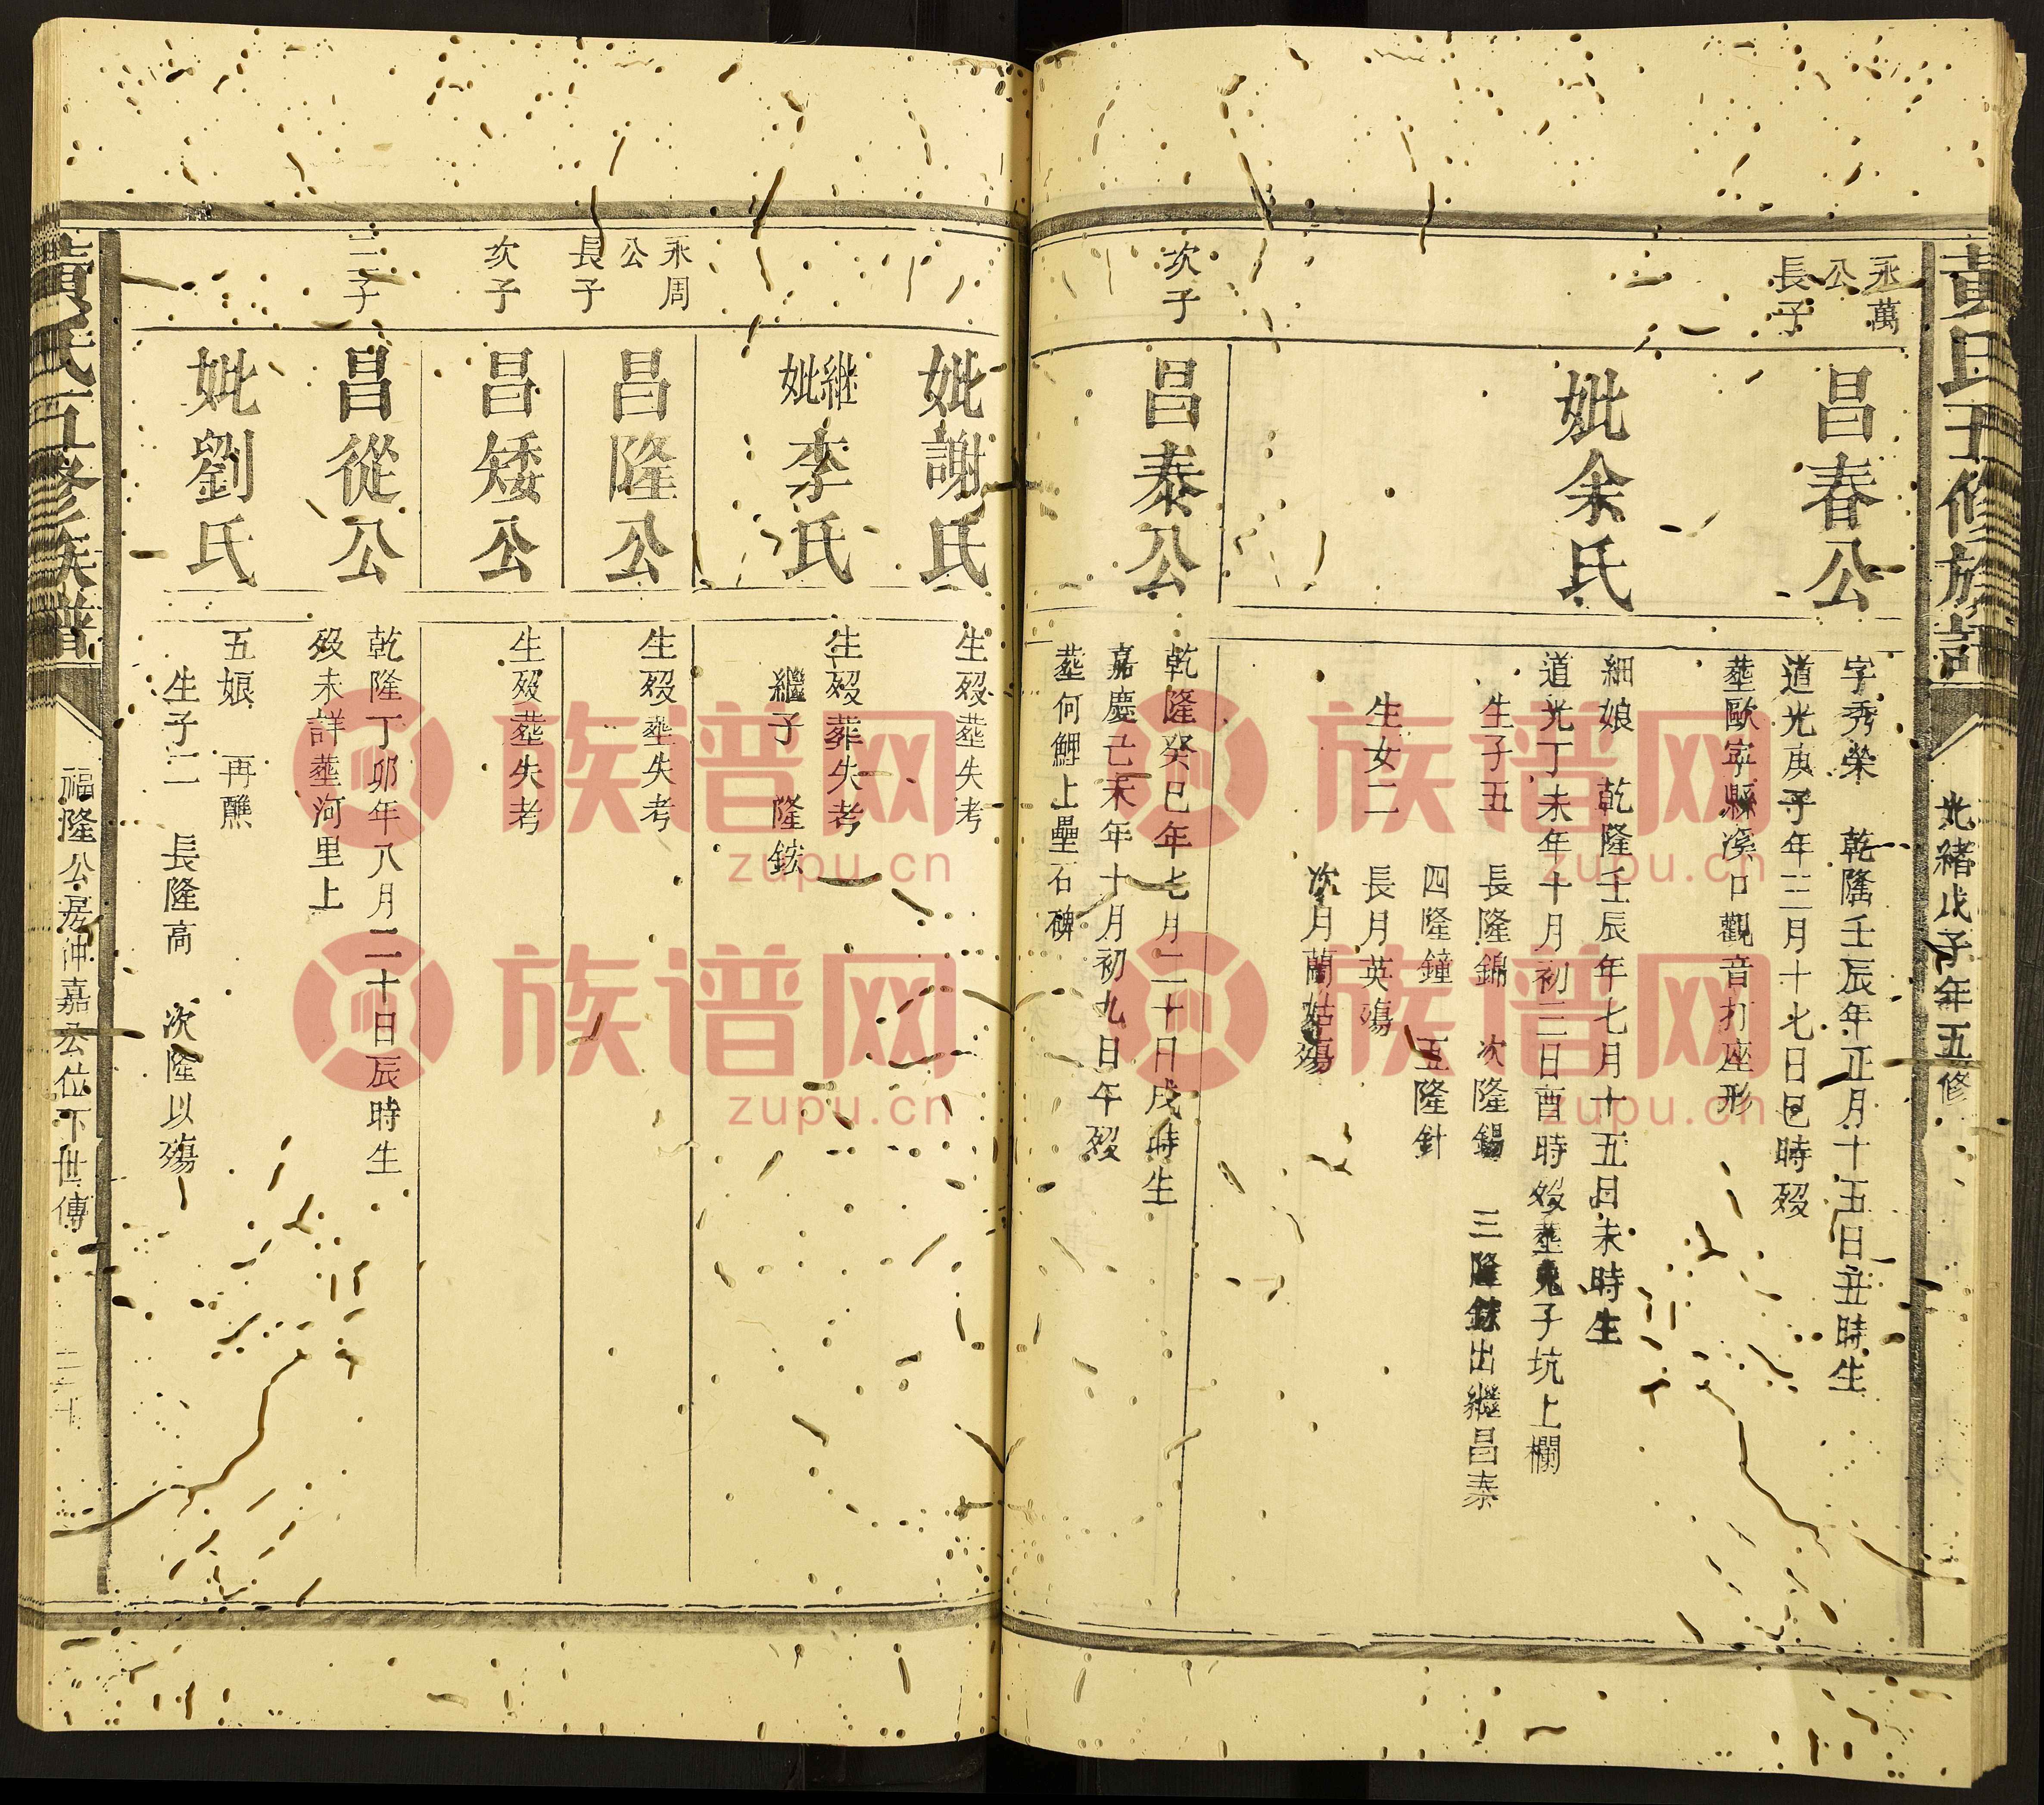 黃氏五修族譜
光緒戊子年五修
永萬
公
長子
昌春公
字秀榮 乾隆壬辰年正月十五日丑時生
道光庚子年三月十七日巳時歿
塟歐寧縣溪口觀音打座形
妣余氏
細娘 乾隆壬辰年七月十五日未時生
道光丁未年十月初二日酉時歿塟兎子坑上欄
生子五 長隆錦 次隆錫 三隆鋐出繼昌泰
四隆鐘 五隆針
生女二 長月英殤
次月蘭姑殤
次子
昌泰公
乾隆癸巳年七月二十日戌時生
嘉慶己未年十月初九日午歿
塟何鯉上壘石碑
妣謝氏
生歿塟失考
繼妣李氏
生歿葬失考
繼子 隆鋐
永周
公
長子
昌隆公
生歿塟失考
次子
昌矮公
生歿塟失考
三子
昌從公
乾隆丁卯年八月二十日辰時生
歿未詳塟河里上
妣劉氏
五娘 再醮
生子二 長隆高 次隆以殤
黃氏五修族譜
福隆公房沖嘉公位下世傳
二十
族谱网
zupu.cn
族谱网
zupu.cn
族谱网
zupu.cn
族谱网
zupu.cn